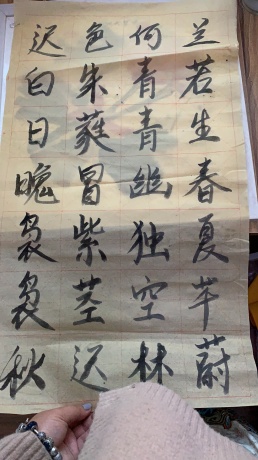 兰若生春夏芊蔚
何青青幽独空林
色朱蕤冒紫茎迟
迟白日晚袅袅秋